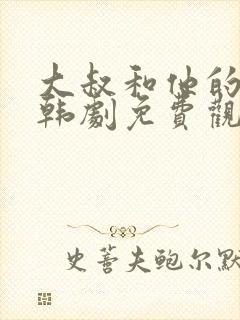 大叔和他的
韩劇免費觀
史蒂夫鲍尔默